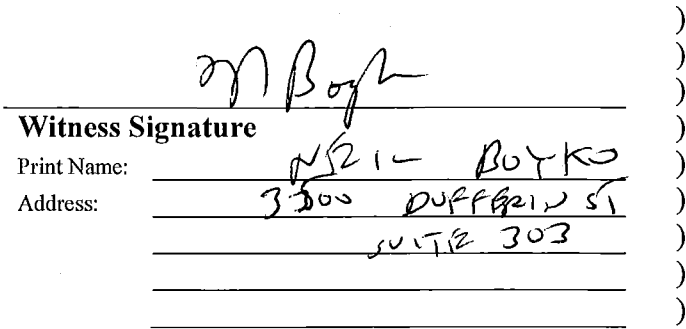 Witness Signature
Print Name: NEIL BOYKO
Address: 3300 DUFFERIN ST
SUITE 303
)
)
)
)
)
)
)
)
)